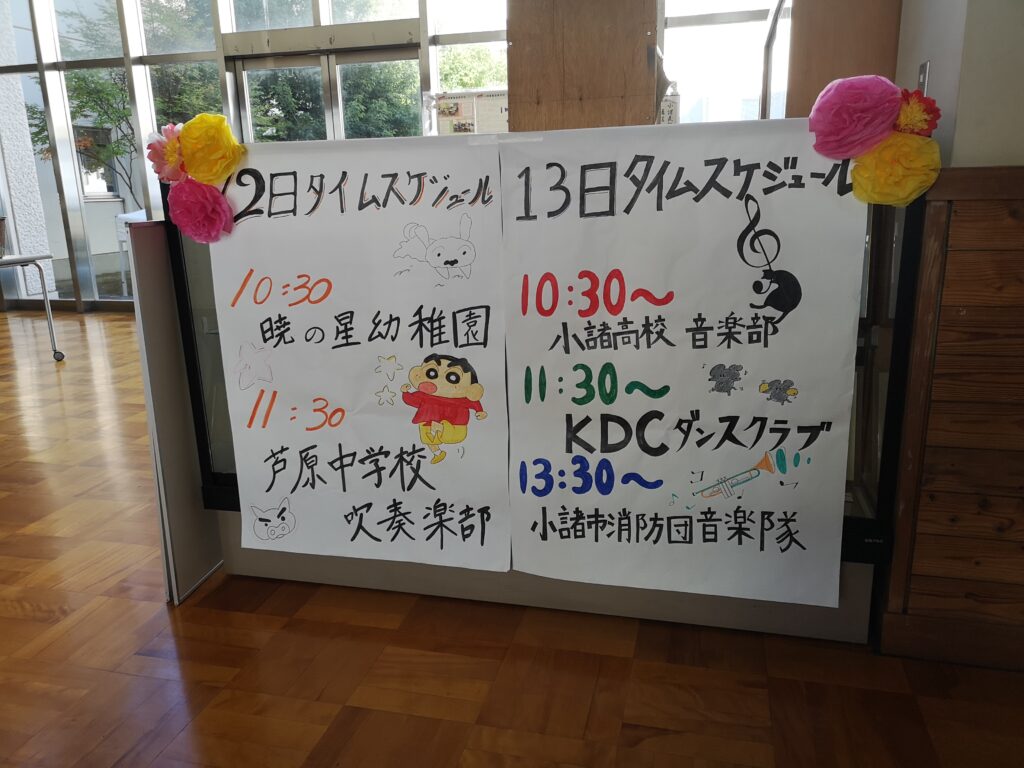 12日タイムスケジュール
10:30
暁の星幼稚園
11:30
芦原中学校
吹奏楽部
13日タイムスケジュール
10:30〜
小諸高校 音楽部
11:30〜
KDCダンスクラブ
13:30〜
小諸市消防団音楽隊